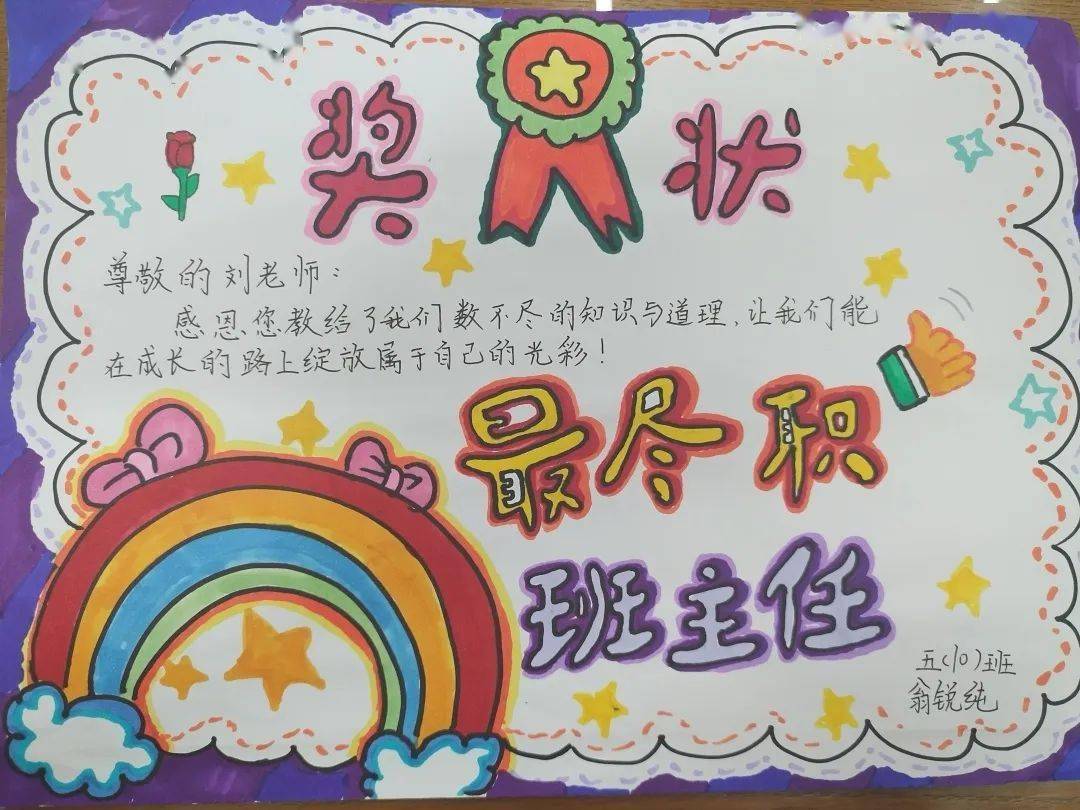 奖状
尊敬的刘老师：
感恩您教给了我们数不尽的知识与道理，让我们能
在成长的路上绽放属于自己的光彩！
最尽职
班主任
五（10）班
翁锐纯